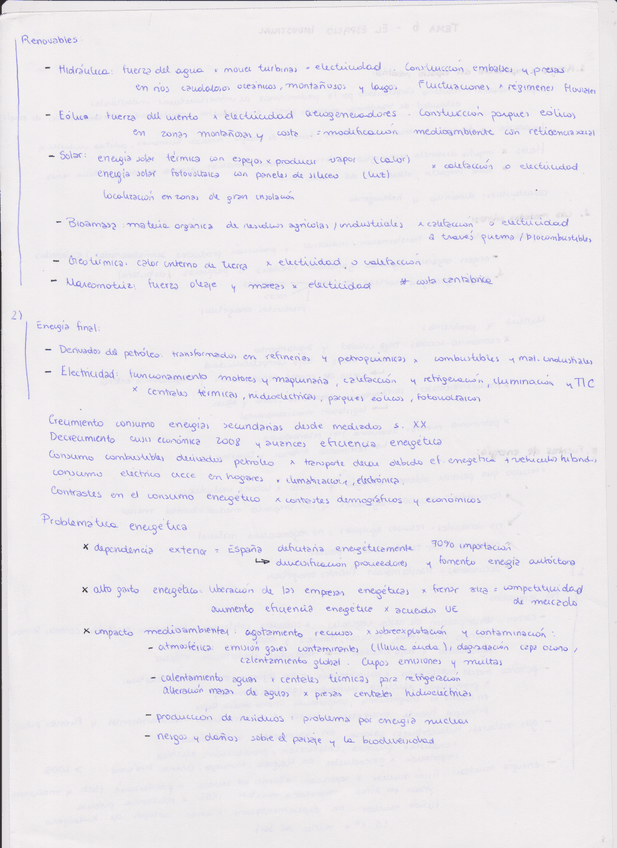 Renovables
- Hidráulica: fuerza del agua × mover turbinas = electricidad. Construcción embalses y presas
en ríos caudalosos oceánicos, montañosos y largos. Fluctuaciones × regímenes fluviales
- Eólica: fuerza del viento × electricidad aerogeneradores. Construcción parques eólicos
en zonas montañosas y costa = modificación medioambiente con reticencia social
- Solar: energía solar térmica con espejos × producir vapor (calor) × calefacción o electricidad
energía solar fotovoltaica con paneles de silicio (luz)
localización en zonas de gran insolación
- Biomasa: materia orgánica de residuos agrícolas / industriales × calefacción o electricidad
a través quema / biocombustibles
- Geotérmica: calor interno de tierra × electricidad o calefacción
- Mareomotriz: fuerza oleaje y mareas × electricidad * costa cantábrica
2)
Energía final:
- Derivados del petróleo: transformados en refinerías y petroquímicas × combustibles y mat. industriales
- Electricidad: funcionamiento motores y maquinaria, calefacción y refrigeración, iluminación y TIC
× centrales térmicas, hidroeléctricas, parques eólicos, fotovoltaicos
Crecimiento consumo energías secundarias desde mediados s. XX
Decrecimiento crisis económica 2008 y avances eficiencia energética
Consumo combustibles derivados petróleo × transporte decae debido ef. energética + vehículos híbridos
consumo eléctrico crece en hogares × climatización, electrónica.
Contrastes en el consumo energético × contrastes demográficos y económicos
Problemática energética
× dependencia exterior = España deficitaria energéticamente: 70% importación
↳ diversificación proveedores y fomento energía autóctona
× alto gasto energético: liberación de las empresas energéticas × frenar alza = competitividad
de mercado
aumento eficiencia energética × acuerdos UE
× impacto medioambiental: agotamiento recursos × sobreexplotación y contaminación:
- atmosférica: emisión gases contaminantes (lluvia ácida), degradación capa ozono,
calentamiento global. Cupos emisiones y multas
- calentamiento aguas × centrales térmicas para refrigeración
alteración masas de aguas × presas centrales hidroeléctricas
- producción de residuos: problema por energía nuclear
- riesgos y daños sobre el paisaje y la biodiversidad